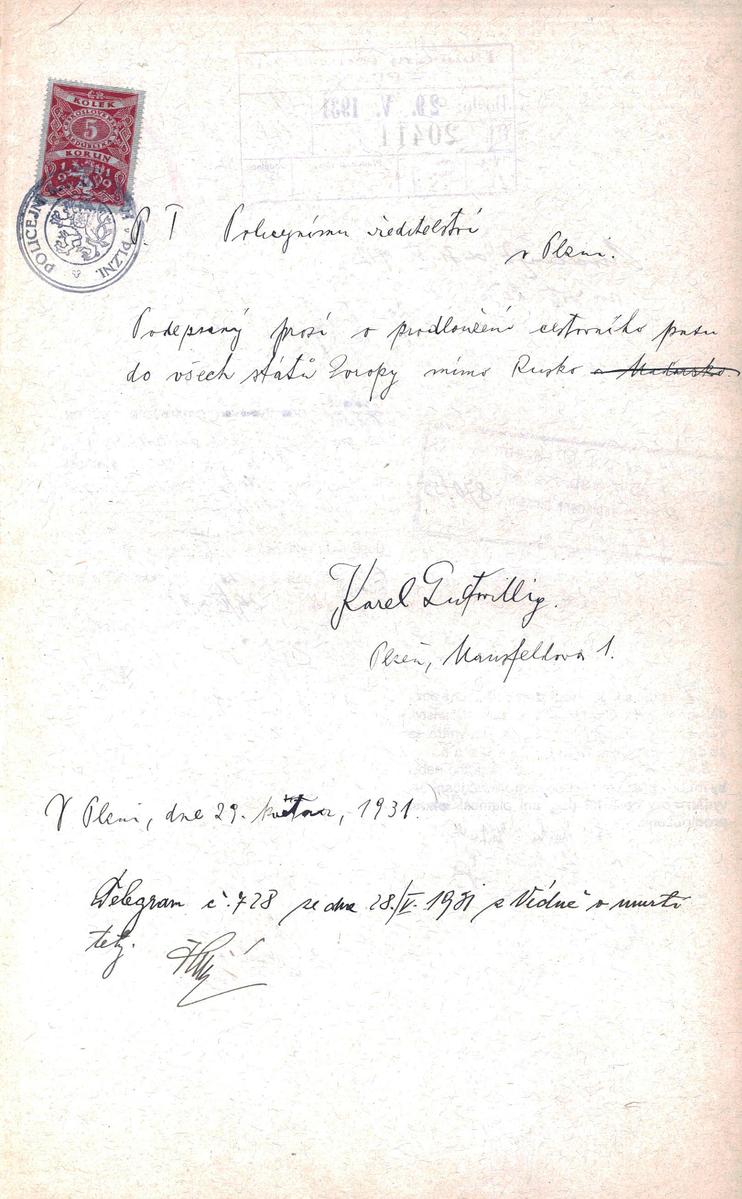 KOLEK
5
KORUN
1919
POLICEJNÍ PLZNI.
P. T Policejnímu ředitelství
v Plzni.
Podepsaný prosí o prodloužení cestovního pasu
do všech států Evropy mimo Rusko a Maďarsko.
Karel Gutwillig.
Plzeň, Mansfeldova 1.
V Plzni, dne 29. května, 1931.
Telegram č. 728 ze dne 28./V. 1931 z Vídně o úmrtí
tety.
29. V. 1931
20411